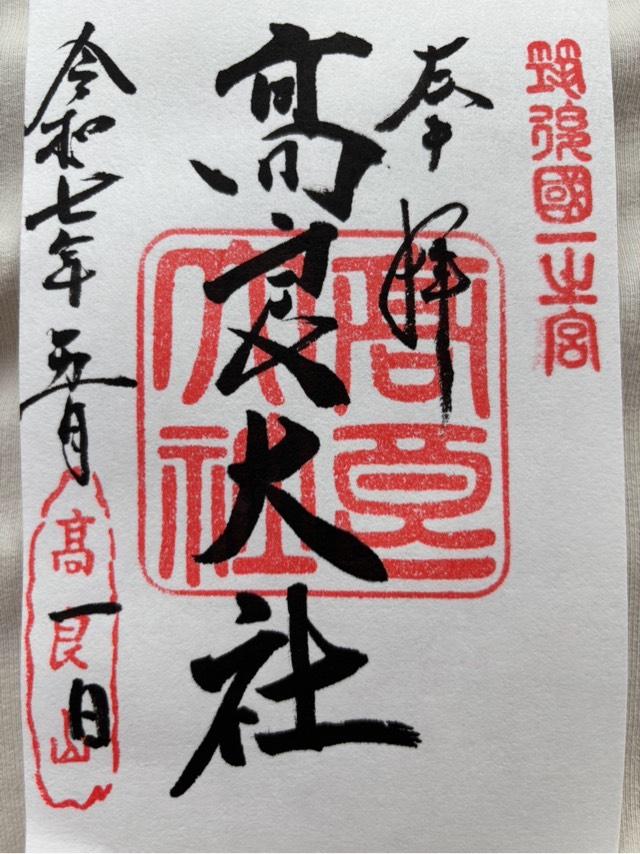 筑後國一之宮
奉拝
髙良大社
髙良大社
令和七年五月一日
髙良山